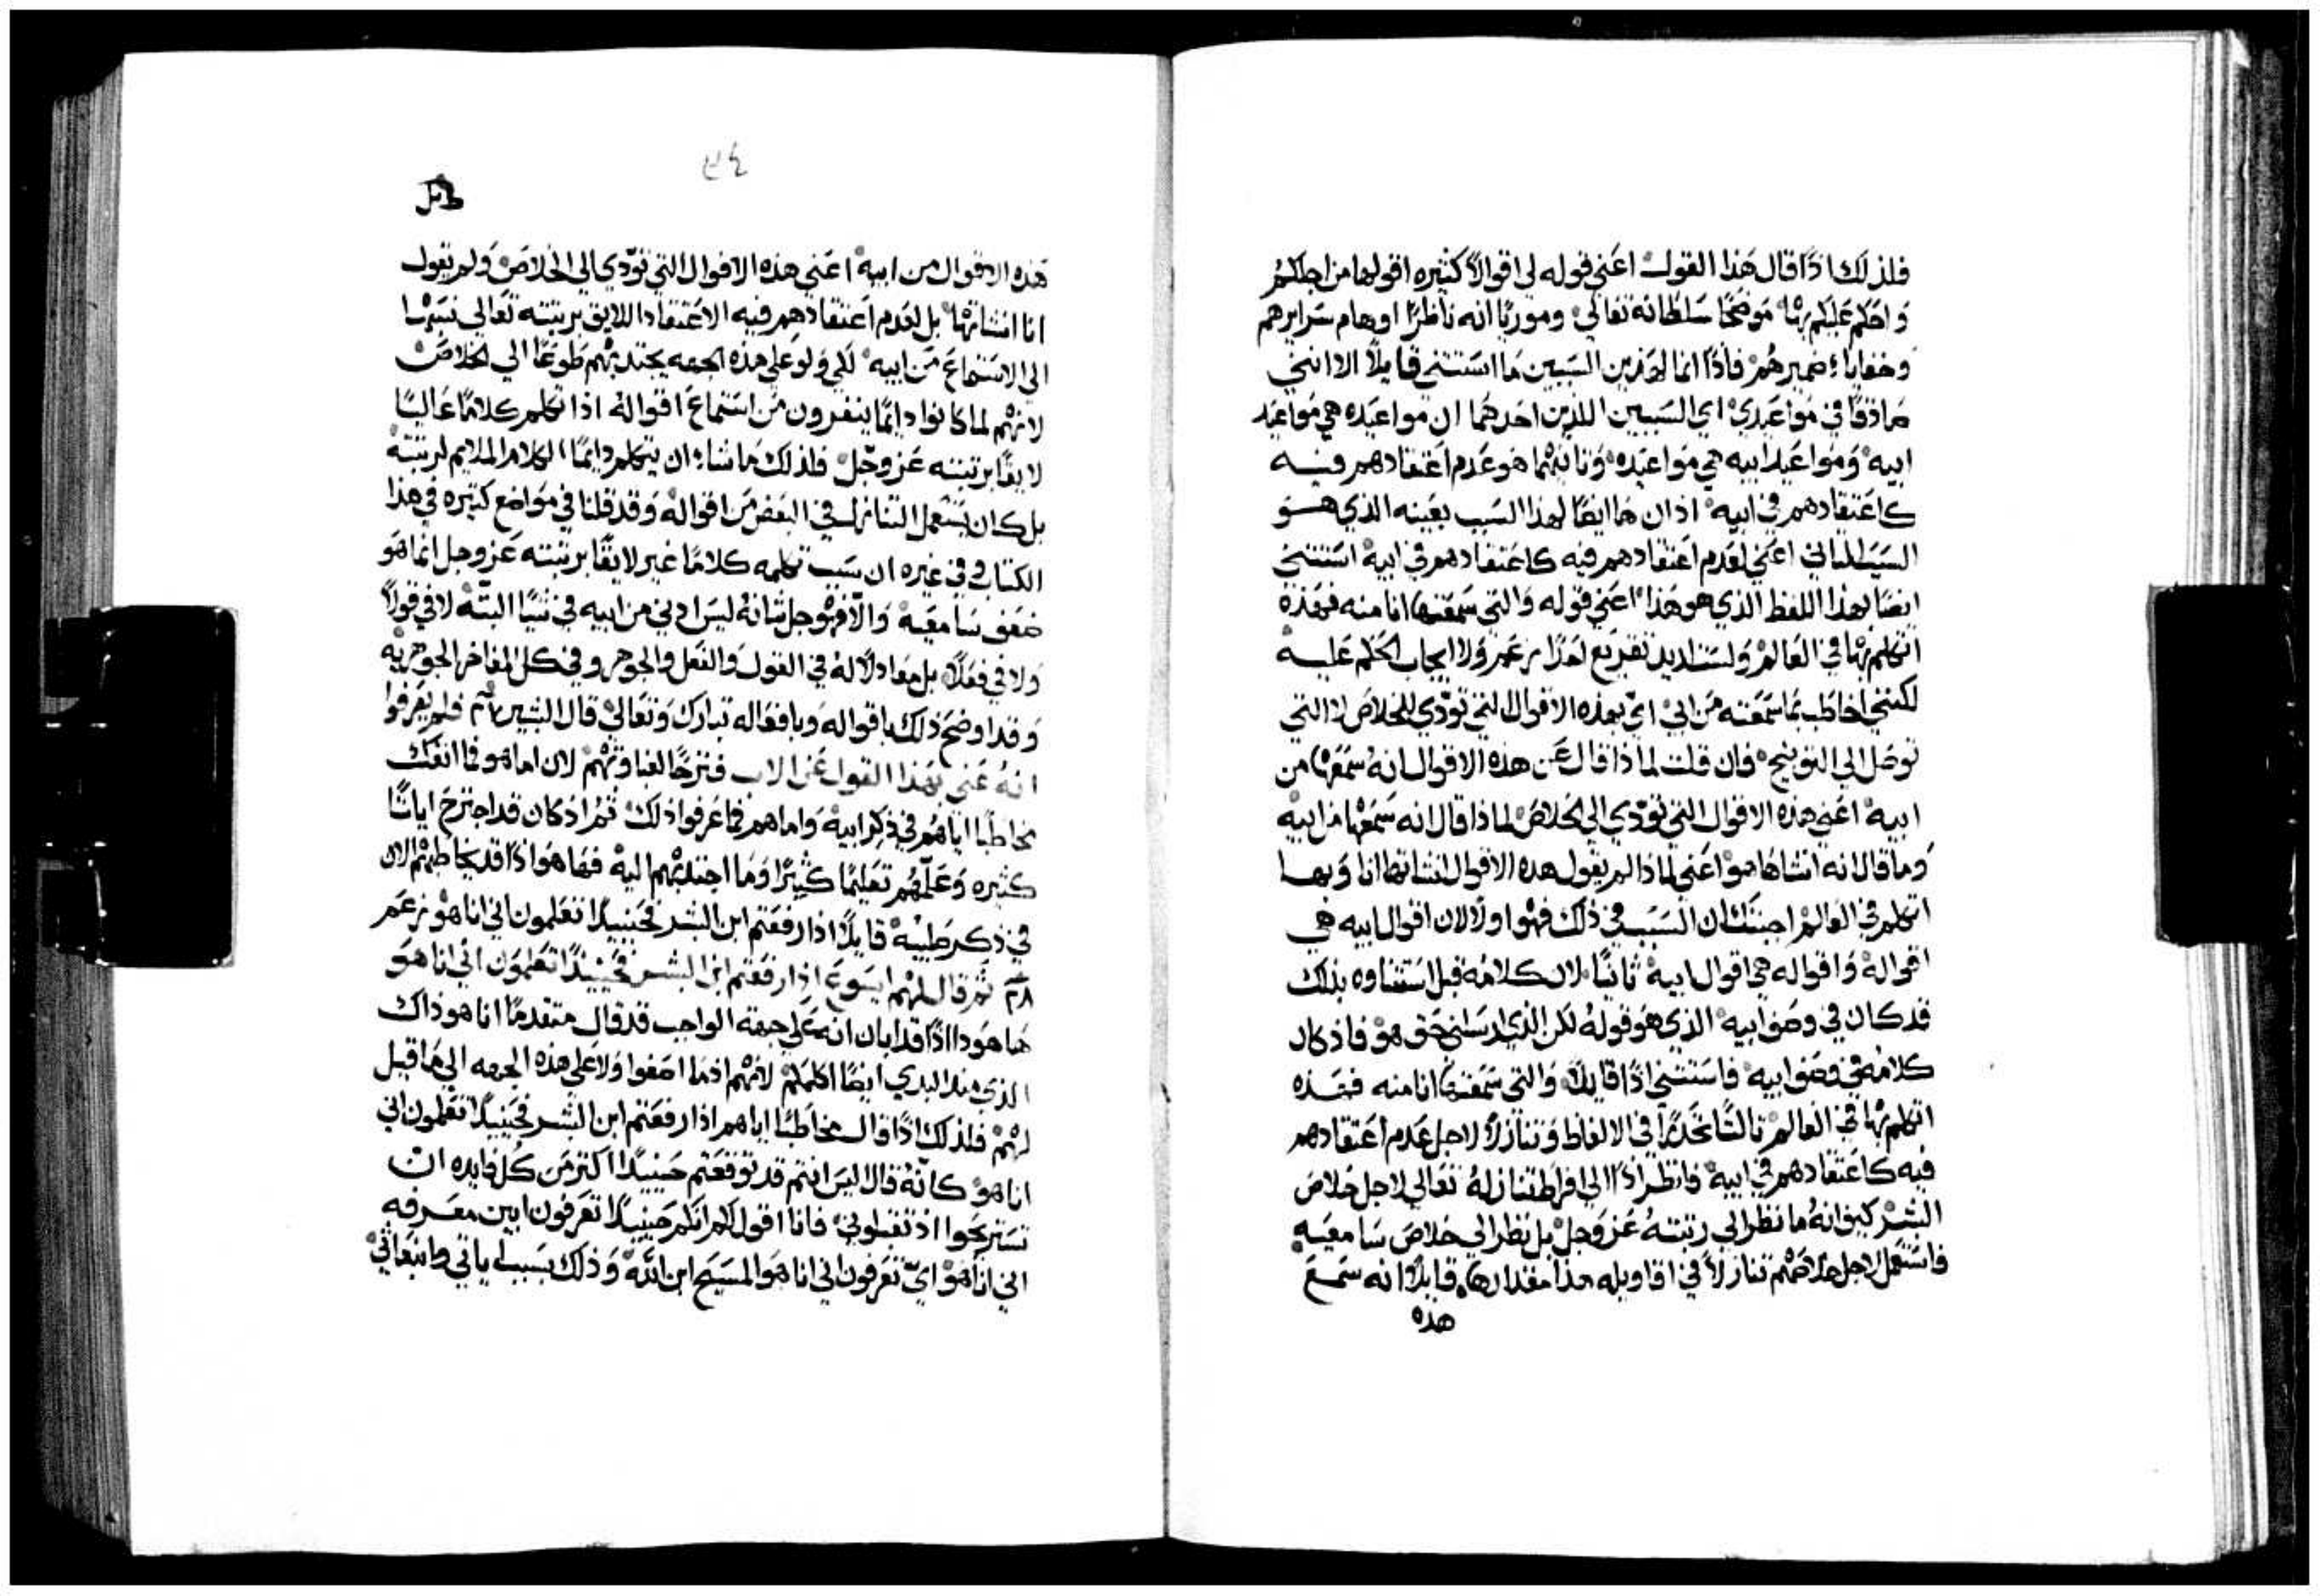 فلذلك اذًا قال هذا القول اعني قوله لي اقوالاً كثيره اقولها من اجلكم
واحكم عليكم بها موضحًا سلطانه تعالي وموريًا انه ناظرًا اوهام سرايرهم
وخفايا ضميرهم فاذًا انما لهذين السببين ما استثني قايلاً الا انني
صادقًا في مواعيدي اي السببين اللذين احدهما ان مواعيده هي مواعيد
ابيه ومواعيد ابيه هي مواعيده وثانيهما هو عدم اعتقادهم فيه
كاعتقادهم في ابيه اذ ان ها ايضًا لهذا السبب بعينه الذي هو
السبب الثاني اعني لعدم اعتقادهم فيه كاعتقادهم في ابيه استثني
ايضًا بهذا اللفظ الذي هو هذا اعني قوله والتي سمعتها انا منه فهذه
اتكلم بها في العالم ولست اريد تقريع لعازر عمر ولا ايجاب الحكم عليه
لكنني اخاطب بما سمعته من ابي اي بهذه الاقوال التي تودي للخلاص لا التي
توصل الي التوبيخ فان قلت لماذا قال عن هذه الاقوال انه سمعها من
ابيه اعني هذه الاقوال التي تودي الي الخلاص لماذا قال انه سمعها من ابيه
وما قال انه انشاها هو اعني لماذا لم يقول هذه الاقوال انشاتها انا وبها
اتكلم في العالم اجبتك ان السبب في ذلك فهو اولاً لان اقوال ابيه هي
اقواله واقواله هي اقوال ابيه ثانيًا لان كلامه قبل استثناوه بذلك
قد كان في وصف ابيه الذي هو قوله لكن الذي ارسلني حق هو فاذ كان
كلامه في وصف ابيه فاستثني اذًا قايلاً والتي سمعتها انا منه فهذه
اتكلم بها في العالم ثالثًا تحدرًا في الالفاظ وتنازلاً لاجل عدم اعتقادهم
فيه كاعتقادهم في ابيه فانظر اذًا الي افراط تنازله تعالي لاجل خلاص
البشر كيف انه ما نظر الي رتبته عز وجل بل نظر الي خلاص سامعيه
فاستعمل لاجل خلاصهم تنازلاً في اقاويله هذا مقدارها قايلاً انه سمع
هذه
٣٤
هذه الاقوال من ابيه اعني هذه الاقوال التي تودي الي الخلاص ولم يقول
انا انشاتها بل لعدم اعتقادهم فيه الاعتقاد اللايق برتبته تعالي نسبها
الي الاستماع من ابيه لكي ولو علي هذه الجهه يجتذبهم طوعًا الي الخلاص
لانهم لما كانوا دايمًا ينفرون من استماع اقواله اذا تكلم كلامًا عاليًا
لايقًا برتبته عز وجل فلذلك ما شاء ان يتكلم دايمًا الكلام الملايم لرتبته
بل كان يستعمل التنازل في البعض من اقواله وقد قلنا في مواضع كثيره في هذا
الكتاب وفي غيره ان سبب تكلمه كلامًا غير لايقًا برتبته عز وجل انما هو
ضعف سامعيه والا فهو جل شانه ليس ادني من ابيه في شيًا البته لا في قولاً
ولا في فعلاً بل معادلاً له في القول والفعل والجوهر وفي كل المفاخر الجوهريه
وقد اوضح ذلك باقواله وبافعاله تبارك وتعالي قال البشير فلم يعرفوا
انه عني بهذا القول عن الاب فنزحًا لغباوتهم لان اما هو فما انفك
مخاطبًا اياهم في ذكر ابيه واما هم فما عرفوا ذلك ثم اذ كان قد اجترح اياتًا
كثيره وعلمهم تعليمًا كثيرًا وما اجتذبهم اليه فها هو اذًا قد يخاطبهم الان
في ذكر صليبه قايلاً اذا رفعتم ابن البشر فحينيذًا تعلمون اني انا هو زعم
٢٨ ثم قال لهم ايسوع اذا رفعتم ابن البشر فحينيذًا تعلمون اني انا هو
ها هوذا اذًا قد ابان انه علي جهة الواجب قد قال متقدمًا انا هو ذاك
الذي منذ البدي ايضًا اكلمكم لانهم اذ ما اصغوا ولا علي هذه الجهه الي ما قيل
لهم فلذلك اذًا قال مخاطبًا اياهم اذا رفعتم ابن البشر فحينيذًا تعلمون اني
انا هو كانه قال اليس انتم قد توقعتم حينيذًا اكثر من كل فايده ان
تستريحوا اذ تقتلوني فانا اقول لكم انكم حينيذًا تعرفون ابين معرفه
اني انا هو اي تعرفون اني انا هو المسيح ابن الله وذلك بسبب اياتي وانبعاثي